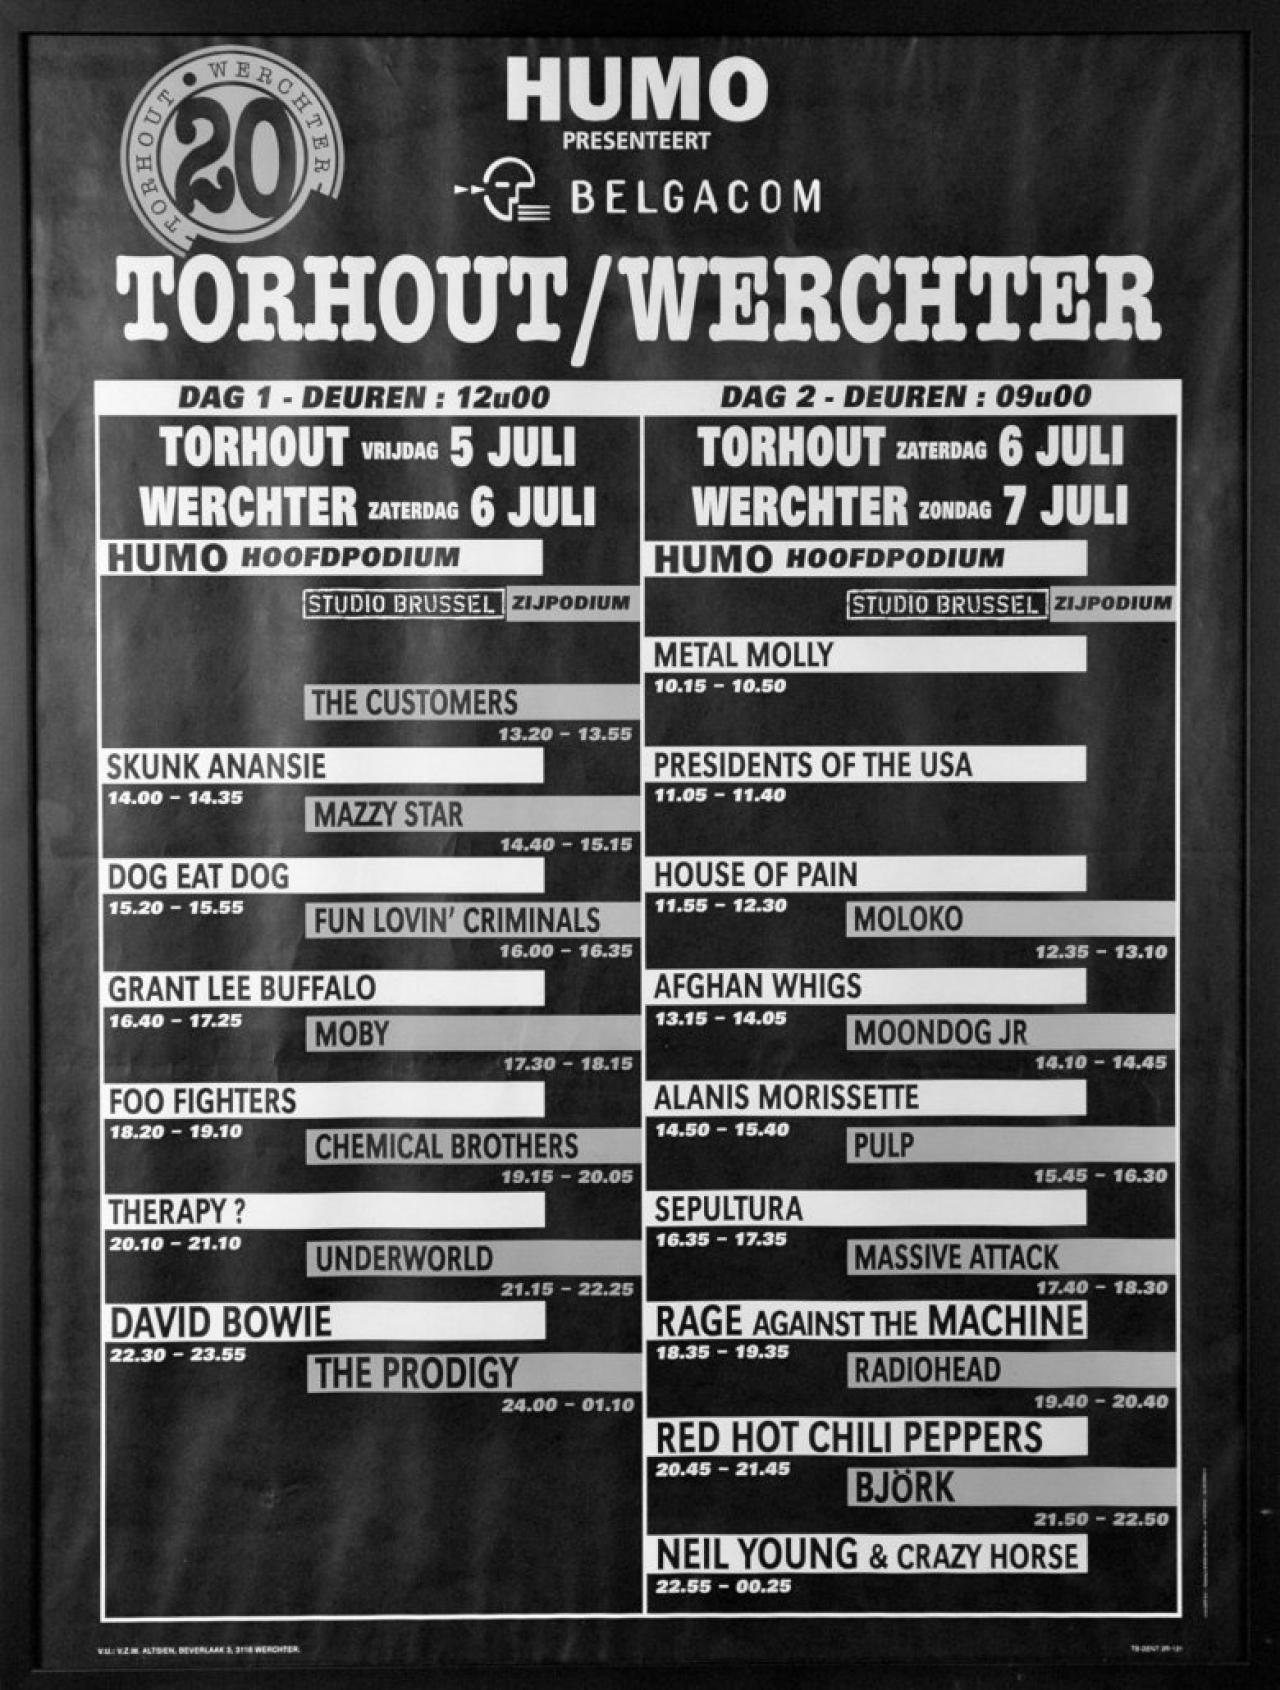 TORHOUT • WERCHTER
20
HUMO
PRESENTEERT
BELGACOM
TORHOUT/WERCHTER
DAG 1 - DEUREN : 12u00
TORHOUT VRIJDAG 5 JULI
WERCHTER ZATERDAG 6 JULI
HUMO HOOFDPODIUM
STUDIO BRUSSEL ZIJPODIUM
THE CUSTOMERS
13.20 – 13.55
SKUNK ANANSIE
14.00 – 14.35
MAZZY STAR
14.40 – 15.15
DOG EAT DOG
15.20 – 15.55
FUN LOVIN' CRIMINALS
16.00 – 16.35
GRANT LEE BUFFALO
16.40 – 17.25
MOBY
17.30 – 18.15
FOO FIGHTERS
18.20 – 19.10
CHEMICAL BROTHERS
19.15 – 20.05
THERAPY ?
20.10 – 21.10
UNDERWORLD
21.15 – 22.25
DAVID BOWIE
22.30 – 23.55
THE PRODIGY
24.00 – 01.10
DAG 2 - DEUREN : 09u00
TORHOUT ZATERDAG 6 JULI
WERCHTER ZONDAG 7 JULI
HUMO HOOFDPODIUM
STUDIO BRUSSEL ZIJPODIUM
METAL MOLLY
10.15 – 10.50
PRESIDENTS OF THE USA
11.05 – 11.40
HOUSE OF PAIN
11.55 – 12.30
MOLOKO
12.35 – 13.10
AFGHAN WHIGS
13.15 – 14.05
MOONDOG JR
14.10 – 14.45
ALANIS MORISSETTE
14.50 – 15.40
PULP
15.45 – 16.30
SEPULTURA
16.35 – 17.35
MASSIVE ATTACK
17.40 – 18.30
RAGE AGAINST THE MACHINE
18.35 – 19.35
RADIOHEAD
19.40 – 20.40
RED HOT CHILI PEPPERS
20.45 – 21.45
BJÖRK
21.50 – 22.50
NEIL YOUNG & CRAZY HORSE
22.55 – 00.25
V.U.: V.Z.W. ALTSIEN, BEVERLAAK 3, 3118 WERCHTER.